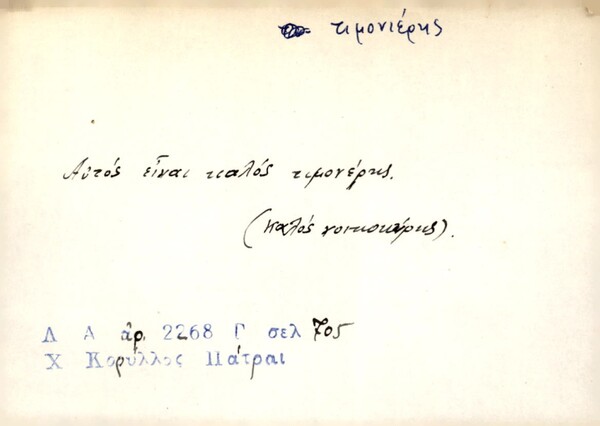 τιμονιέρης
Αὐτός εἶναι καλός τιμονέρης.
(καλός νοικοκύρης).
Λ Α ἀρ. 2268 Γ σελ 705
Χ Κορύλλος Πάτραι